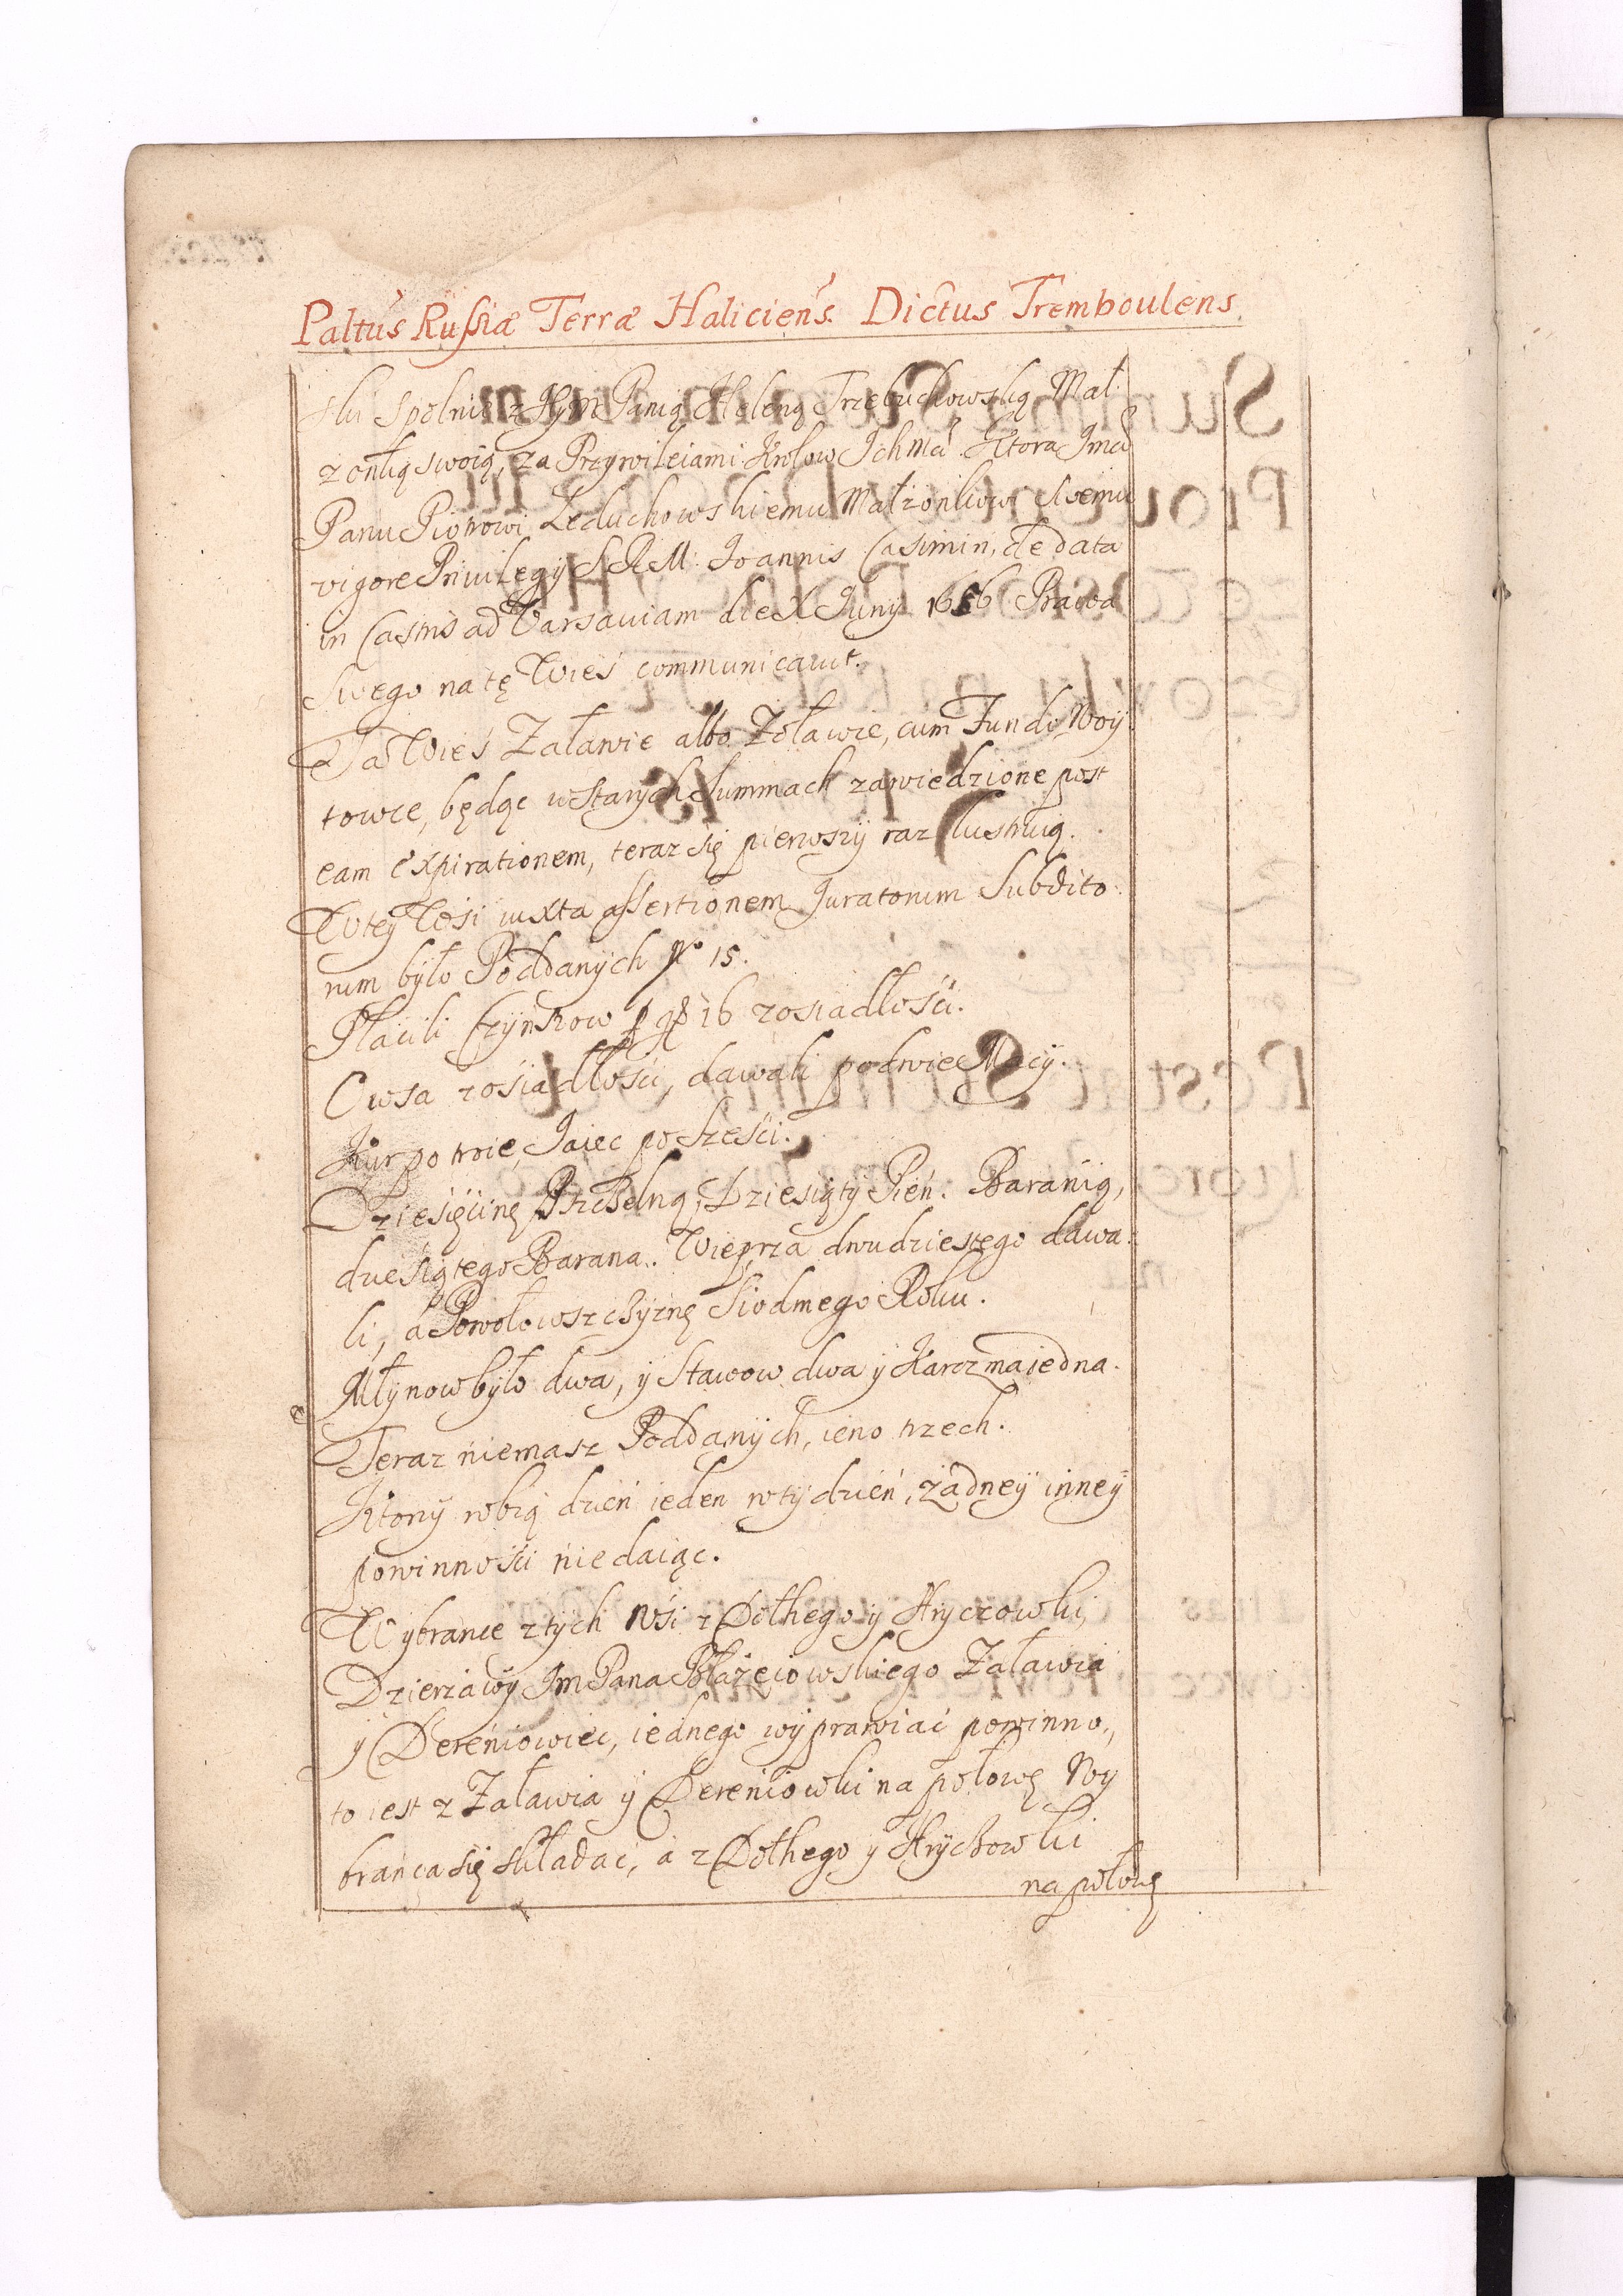 Paltus Russiæ Terræ Haliciens. Dictus Tremboulens
ski spolnie z Jeym Panią Heleną Trzebuchowską Mał
żonką swoią, za Przywileiami Krolow Ichmć. Ktora Jmć
Panu Piotrowi Leduchowskiemu Małżonkowi swemu
vigore Privilegij S R M. Joannis Casimiri, de data
in Castris ad Varsaviam die X Juny 1656 Prawa
Swego na tę Wieś communicavit.
Ta Wieś Załawie albo Zoławie, cum Fundo Woÿ
towce, będąc w Starych Summach zawiedzione post
eam expirationem, teraz się pierwszÿ raz lustruią.
W teÿ Wsi iuxta assertionem Juratorum Subdito
rum bÿło Poddanÿch No 15.
Płacili Czÿnszow p gr 16 z osiadłości.
Owsa z osiadłości, dawali po dwie Macÿ.
Kur po troie, Jaiec po sześci.
Dziesięcinę Pszczelną, Dziesiątÿ Pień. Baranią,
dziesiątego Barana. Wieprza dwudziestego dawa
li, a Powołowszczÿznę Siodmego Roku.
Młÿnow bÿło dwa, ÿ Stawow dwa ÿ Karczma iedna.
Teraz niemasz Poddanÿch, ieno trzech.
Ktorzÿ robią dzień ieden w tÿdzień, żadneÿ inneÿ
powinności nie daiąc.
Wybrańce z tÿch Wsi z Dołhego ÿ Hryczowki,
Dzierżawÿ Jm Pana Błażeiowskiego Załawia
y Dereniowiec, iednego wÿprawiać powinno,
to iest z Załawia ÿ Dereniowki na połowę Wy
brańca się składać, a z Dołhego y Hrÿczowki
na połowę